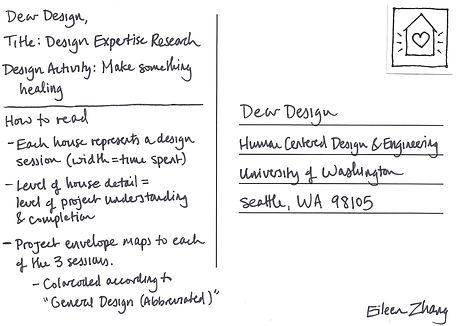 Dear Design,
Title: Design Expertise Research
Design Activity: Make something
healing
How to read
- Each house represents a design
session (width = time spent)
- Level of house detail =
level of project understanding
& completion
- Project envelope maps to each
of the 3 sessions.
- Colorcoded according to
"General Design (Abbreviated)"
Dear Design
Human Centered Design & Engineering
University of Washington
Seattle, WA 98105
Eileen Zhang